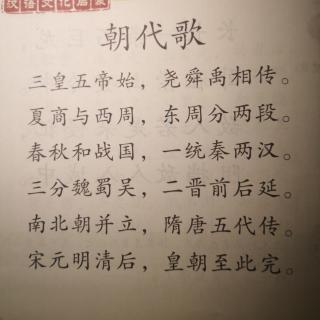 汉语文化启蒙
朝代歌
三皇五帝始，尧舜禹相传。
夏商与西周，东周分两段。
春秋和战国，一统秦两汉。
三分魏蜀吴，二晋前后延。
南北朝并立，隋唐五代传。
宋元明清后，皇朝至此完。